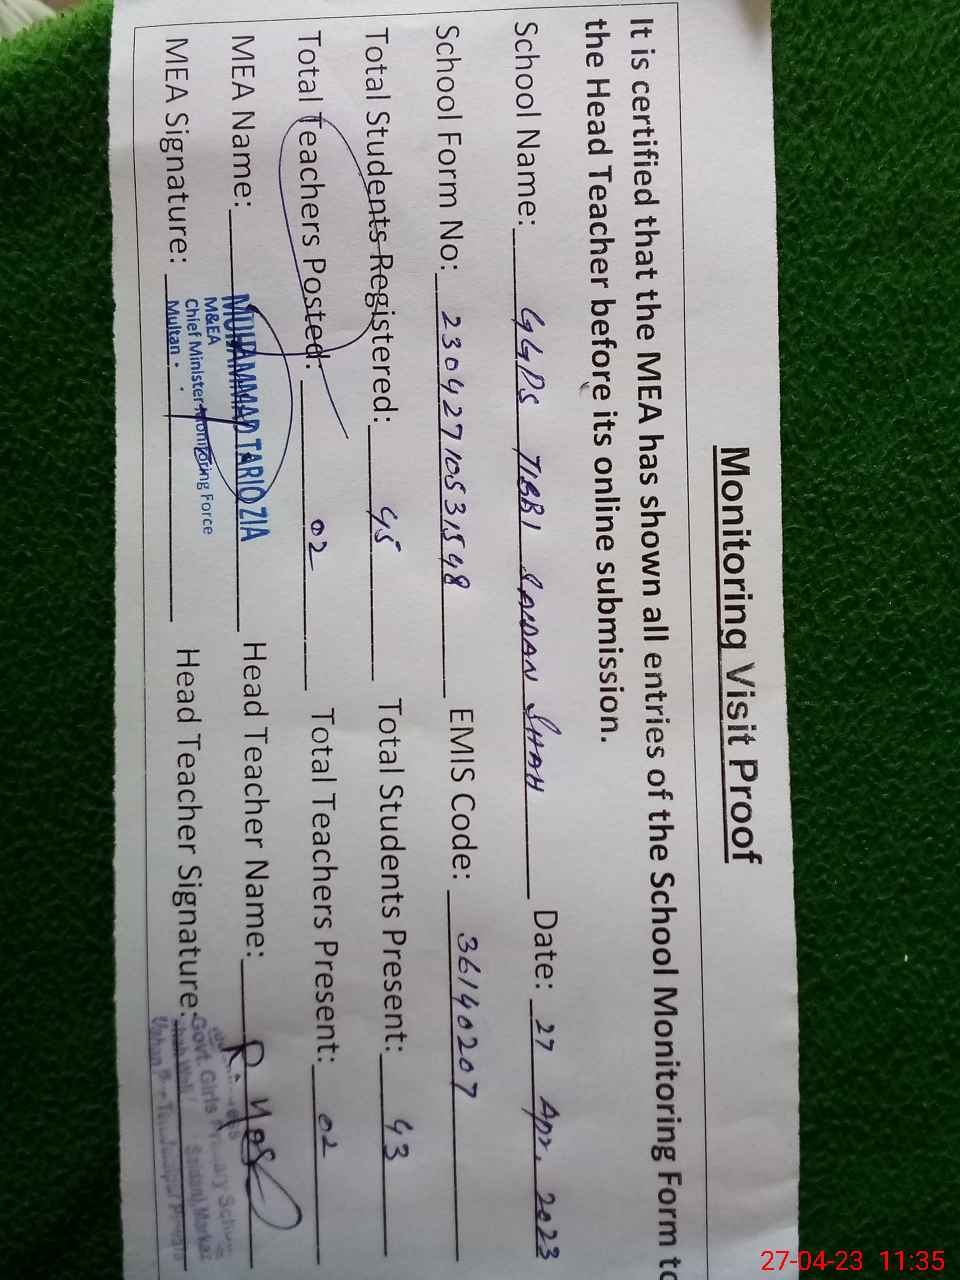 Monitoring Visit Proof
It is certified that the MEA has shown all entries of the School Monitoring Form to
the Head Teacher before its online submission.
School Name: GGPS TIBBI SAIDAN SHAH Date: 27 Apr, 2023
School Form No: 23042710531548 EMIS Code: 36140207
Total Students Registered: 45 Total Students Present: 43
Total Teachers Posted: 02 Total Teachers Present: 02
MEA Name: MUHAMMAD TARIQ ZIA Head Teacher Name:
M&EA
Chief Minister Monitoring Force
Multan
MEA Signature: Head Teacher Signature:
Govt. Girls Primary School
27-04-23 11:35